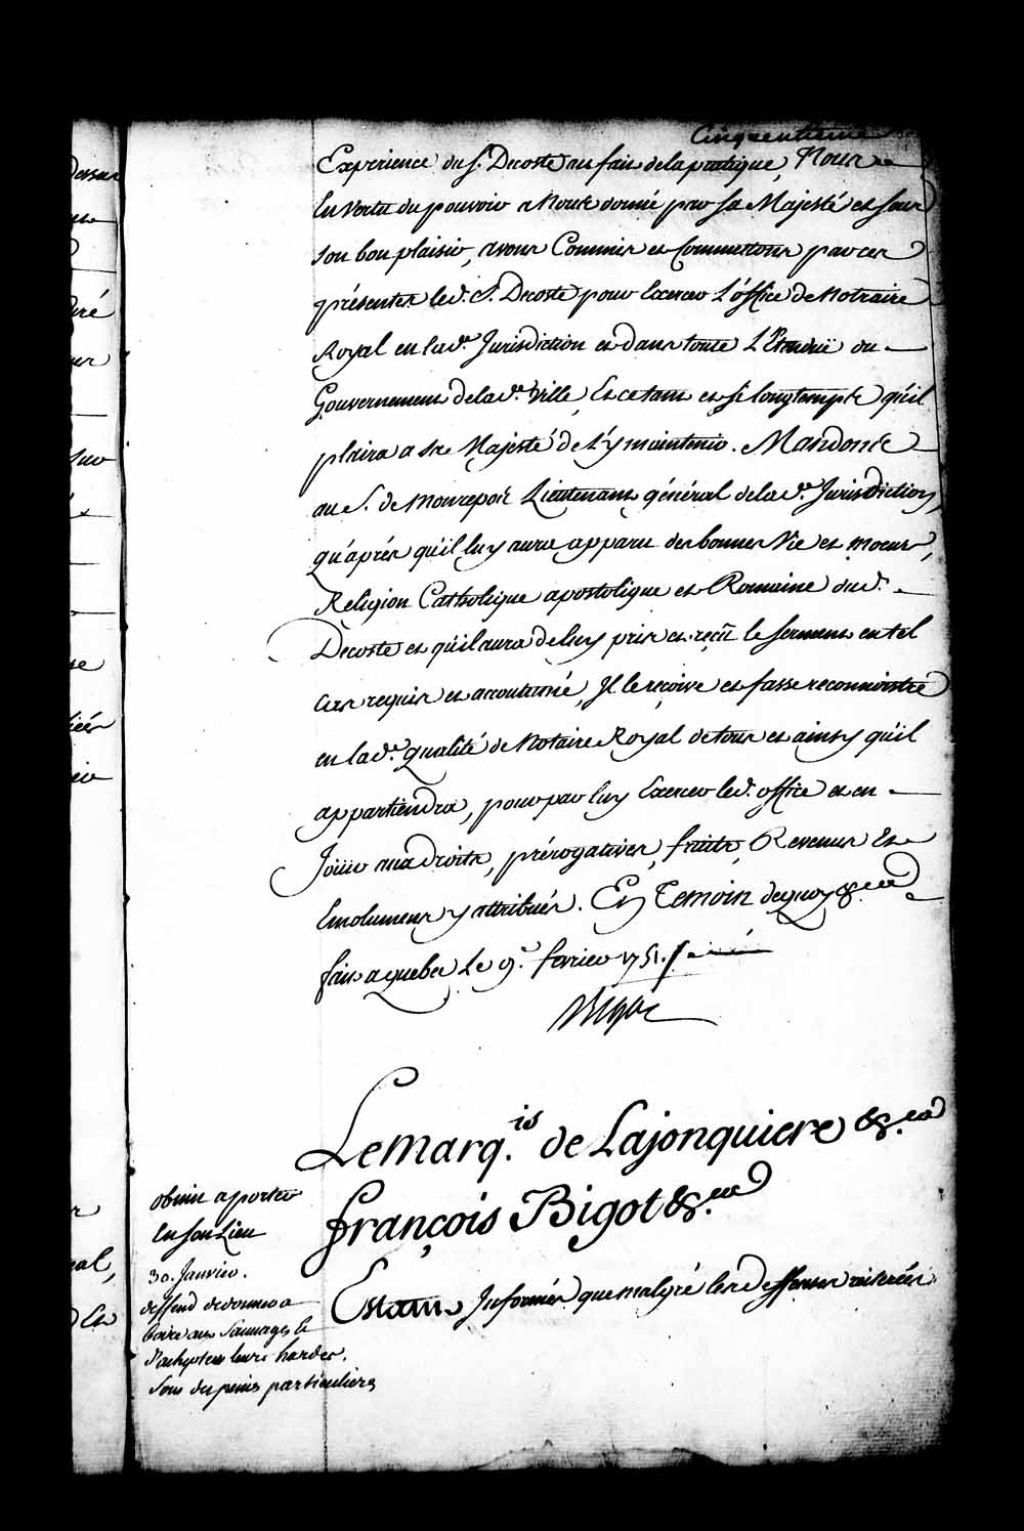 Cinquentieme
Experience du S. Decoste au fait de la pratique, Nous
En vertu du pouvoir a Nous donné par Sa Majesté et sous
son bon plaisir, avons Commis et Commettons par ces
présentes led. S. Decoste pour Exercer L'office de Notaire
Royal en lad.e Jurisdiction et dans toute L'Etendüe du
Gouvernement de lad.e Ville, Et ce tant et si longtemps qu'il
plaira a Sa Majesté de L'y maintenir. Mandons
au S. de Monrepos Lieutenant général de lad.e Jurisdiction,
qu'aprés qu'il luy aura apparu des bonnes Vie et moeurs,
Religion Catholique apostolique et Romaine dud.
Decoste et qu'il aura de luy pris et reçû le serment en tel
cas requis et accoutumé, Il le reçoive et fasse reconnoistre
en lad.e qualité de Notaire Royal de tous et ainsy qu'il
appartiendra, pour par luy Exercer led. office et en
Joüir aux droits, prérogatives, fruits, Revenus Et
Emolumens y attribués. En Temoin de quoy &.ca
fait a quebec Le 9.e fevrier 1751. /.
Bigot
Le Marq.is de Lajonquiere &.ca
françois Bigot &.ca
Estant Informés que malgré les deffenses reiterées
obmis a porter
En son Lieu
30. Janvier.
deffend de donner a
boire aux Sauvages et
d'achepter leurs hardes.
Sous des peines particulieres